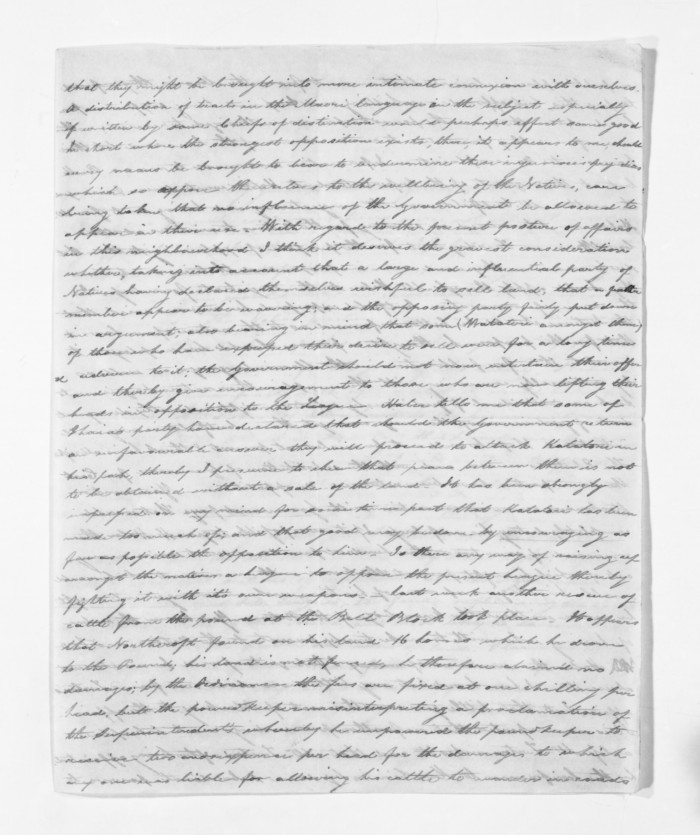 that they might be brought into more intimate connexion with ourselves.
A distribution of tracts in the Maori language on the subject especially
if written by some Chiefs of distinction would perhaps effect some good
In short where the strongest opposition exists, there it appears to me should
every means be brought to bear to undermine the
which so the Natives to the wellbeing of the Natives, care
being taken that no influence of the Government be allowed to
appear in their use. With regard to the present posture of affairs
in this neighbourhood I think it deserves the gravest consideration
whether, taking into account that a large and influential party of
Natives having declared themselves wishful to sell land, that a greater
number appear to be wavering, and the opposing party fairly put down
in argument, also bearing in mind that some (Katatore amongst them)
of those who have expressed their desire to sell were for a long time
adverse to it, the Government should not now entertain their offer
and thereby give encouragement to those who are now lifting their
heads in opposition to the League. Halse tells me that some of
Ihaia's party have declared that should the Government return
a unfavourable answer they will proceed to attack Katatore in
his pah, thereby I presume to shew that peace between them is not
to be obtained without a sale of the land. It has been strongly
impressed in my mind for some time past that Katatore has been
made too much of, and that good may be done by encouraging as
far as possible the opposition to him. Is there any way of raising up
amongst the natives a league to oppose the present league thereby
fighting it with its own weapons. Last week another rescue of
cattle from the pound at the Bell Block took place. It appears
that Northcroft found on his land 16 horses which he drove
to the Pound; his land is not fenced, he therefore claimed no
damages; by the Ordinance the fees are fixed at one shilling per
head, but the poundkeeper misinterpreting a proclamation of
the Superintendent whereby he empowered the poundkeeper to
receive two and sixpence per head for the damages to which
any owner is liable for allowing his cattle to wander in roads